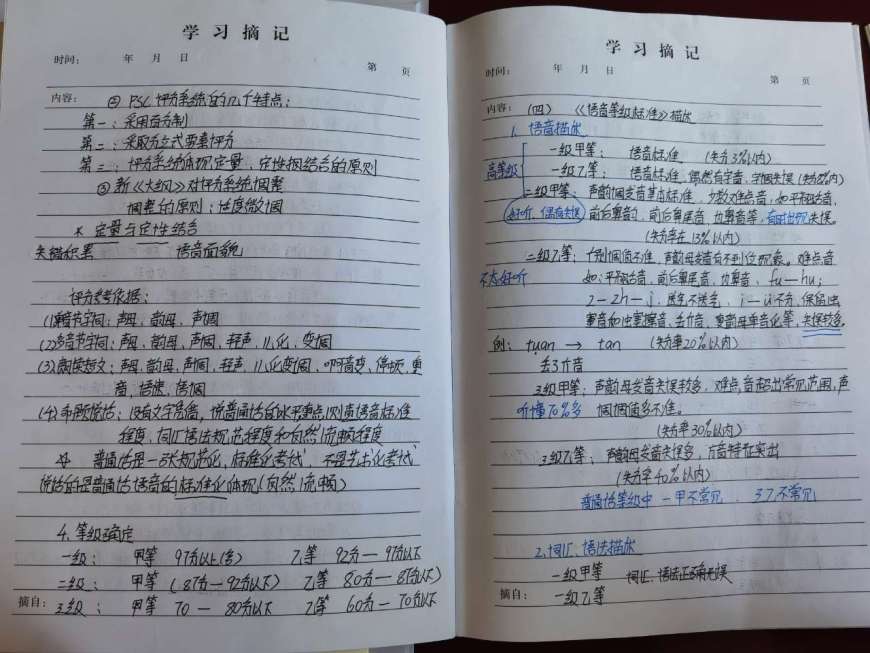 学习摘记
时间： 年 月 日
第 页
内容： ② PSC评分系统的几个特点：
第一：采用百分制
第二：采取分立式要素评分
第三：评分系统体现定量、定性相结合的原则
③ 新《大纲》对评分系统调整
调整的原则：适度微调
* 定量与定性结合
失错积累 语音面貌
评分参考依据：
(1)单音节字词：声母、韵母、声调
(2)多音节字词：声母、韵母、声调、轻声、儿化、变调
(3)朗读短文：声母、韵母、声调、轻声、儿化变调、啊音变、停顿、重
音、语速、语调
(4)命题说话：没有文字凭借，说普通话的水平重点测查语音标准
程度、词汇语法规范程度和自然流畅程度
普通话是一场规范化，标准化考试，不是艺术化考试
说话的是普通话语音的标准化体现（自然流畅）
4. 等级确定
一级： 甲等 97分以上(含) 乙等 92分—97分以下
二级： 甲等 (87分—92分以下) 乙等 80分—87分以下
3级： 甲等 70 — 80分以下 乙等 60分—70分以下
摘自：
学习摘记
时间： 年 月 日
第 页
内容： (四) 《语音等级标准》描述
1. 语音描述
高等级
一级甲等： 语音标准 （失分3%以内）
一级乙等： 语音标准，偶然有字音、字调失误（失分8%内）
二级甲等：声韵调发音基本标准，少数难点音，如平翘舌音，
好听、偶有失误 前后鼻韵，前后鼻尾音、边鼻音等，有时出现失误。
（失分率在13%以内）
二级乙等：个别调值不准，声韵母发音有不到位现象。难点音
不太好听 如：平翘舌音，前后鼻尾音，边鼻音、fu—hu；
z—zh—j，送气不送气、i—ü不分，保留浊
塞音和浊塞擦音、丢介音、复韵母单音化等，失误较多。
例： tuan → tan （失分率20%以内）
丢了介音
3级甲等：声韵母发音失误较多，难点音超出常见范围，声
听懂70%多 调调值多不准。
（失分率30%以内）
3级乙等：声韵母发音失误多，方音特征突出
（失分率40%以内）
普通话等级中 一甲不常见、3乙不常见
2.词汇、语法描述
一级甲等 词汇、语法正确无误
摘自： 一级乙等